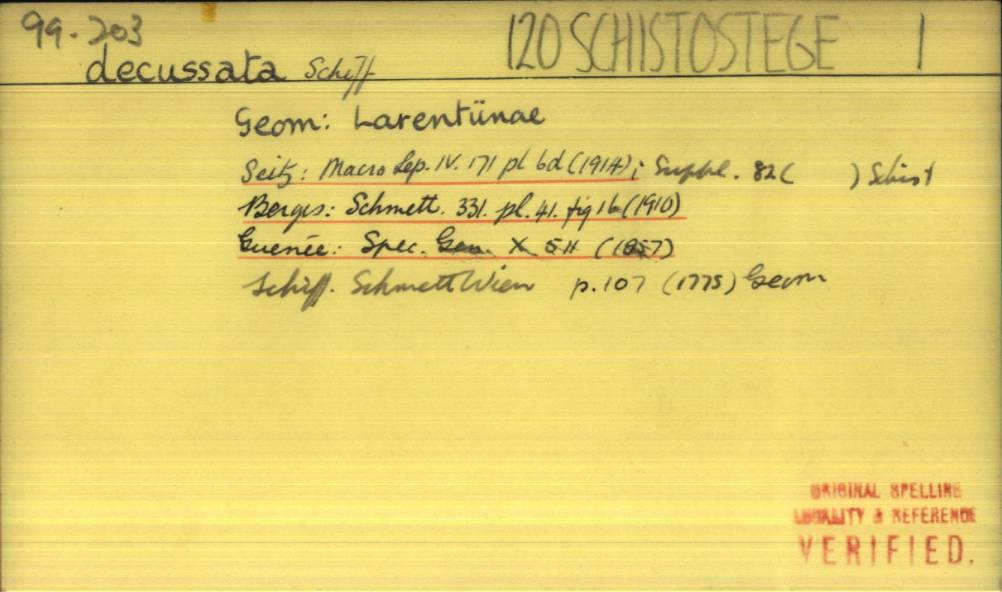 99-203
120 SCHISTOSTEGE 1
decussata Schiff
Geom: Larentiinae
Seitz: Macro Lep. IV. 171 pl 6d (1914); Suppl. 82 ( ) Schist
Berges: Schmett. 331. pl. 41. fig 16 (1910)
Guenée: Spec. Gen. X 511 (1857)
Schiff. Schmett Wien p. 107 (1775) Geom
ORIGINAL SPELLING
LOCALITY & REFERENCE
VERIFIED.